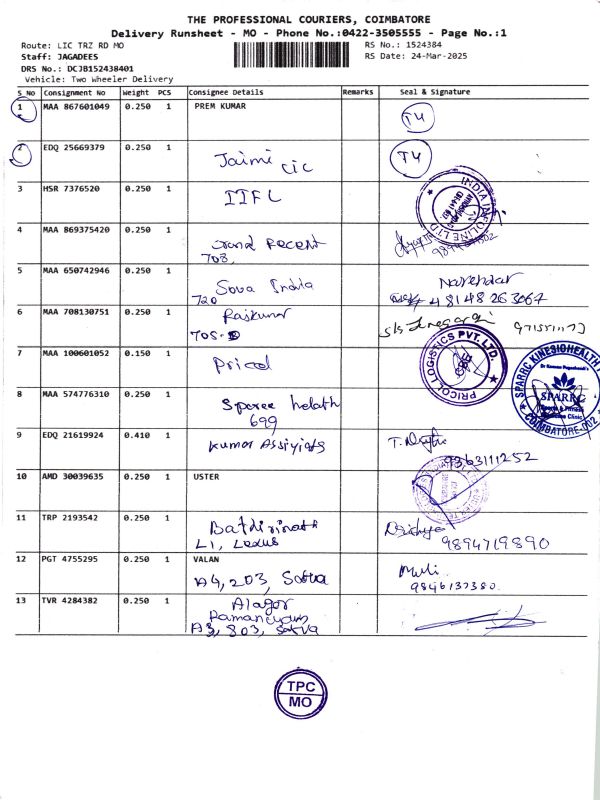 THE PROFESSIONAL COURIERS, COIMBATORE
Delivery Runsheet - MO - Phone No.:0422-3505555 - Page No.:1
Route: LIC TRZ RD MO RS No.: 1524384
Staff: JAGADEES RS Date: 24-Mar-2025
DRS No.: DCJB152438401
Vehicle: Two Wheeler Delivery
S No Consignment No Weight PCS Consignee Details Remarks Seal & Signature
1 MAA 867601049 0.250 1 PREM KUMAR
T4
2 EDQ 25669379 0.250 1
Jaimi LIC T4
3 HSR 7376520 0.250 1 IIFL
INDIA INFOLINE LTD
4 MAA 869375420 0.250 1
703
5 MAA 650742946 0.250 1
Sova India Narendar
720 48148 263067
6 MAA 708130751 0.250 1 Rajkumar
705-D
7 MAA 100601052 0.150 1
Pricol PRICOL LOGISTICS PVT. LTD.
CBE
SPARRC KINESIOHEALTH
SPARRC
Sports & Fitness
Medicine Clinic
COIMBATORE-002
8 MAA 574776310 0.250 1
Sparee helath
699
9 EDQ 21619924 0.410 1 Kumar Assiyiats
9363111252
10 AMD 30039635 0.250 1 USTER
11 TRP 2193542 0.250 1
L1, Lexus 9894719890
12 PGT 4755295 0.250 1 VALAN
A4, 203, Satva Muli
9846137380
13 TVR 4284382 0.250 1 Alagar
A3, 803, Satva
TPC
MO